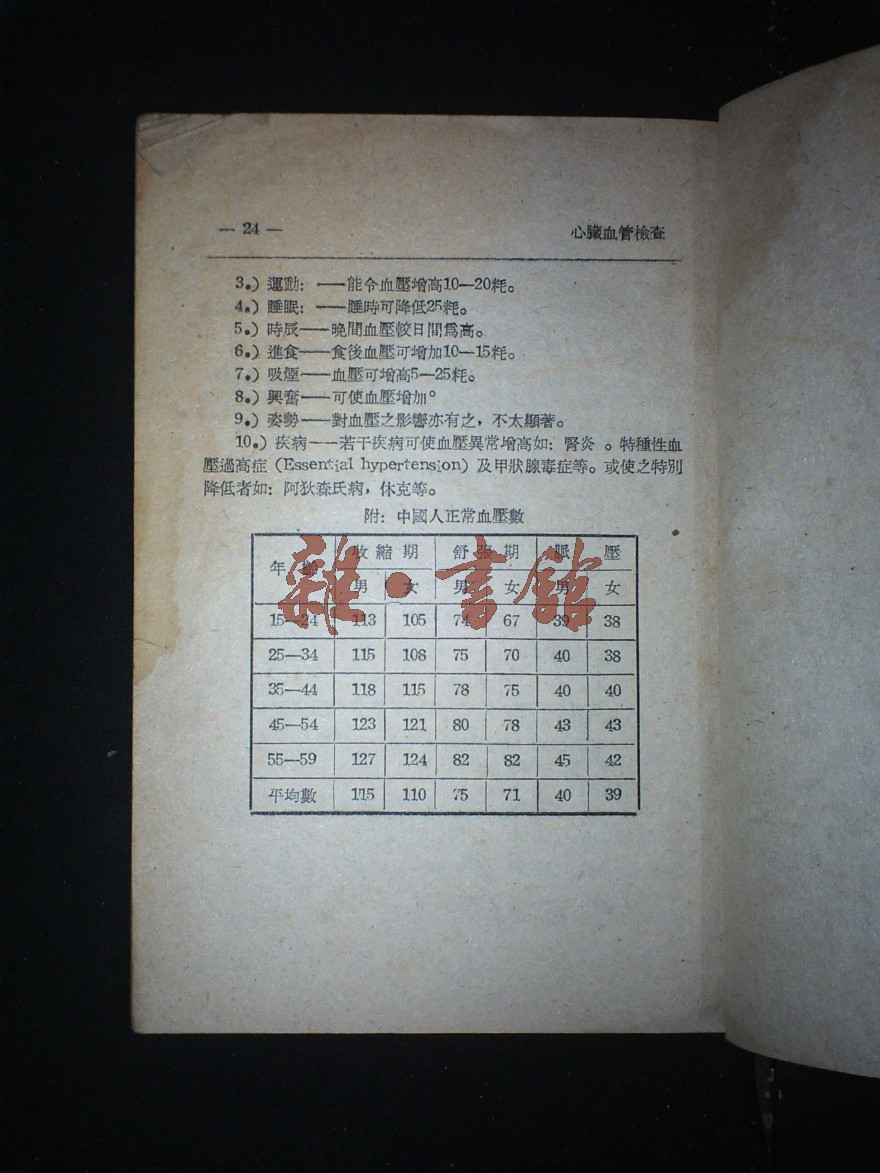 — 24 —
心臟血管檢查
3.) 運動: ——能令血壓增高10—20粍。
4.) 睡眠: ——睡時可降低25粍。
5.) 時辰——晚間血壓較日間爲高。
6.) 進食——食後血壓可增加10—15粍。
7.) 吸煙——血壓可增高5—25粍。
8.) 興奮——可使血壓增加。
9.) 姿勢——對血壓之影響亦有之，不太顯著。
10.) 疾病——若干疾病可使血壓異常增高如: 腎炎 。特種性血
壓過高症 (Essential hypertension) 及甲狀腺毒症等。或使之特別
降低者如: 阿狄森氏病，休克等。
附: 中國人正常血壓數
年 齡 收 縮 期 舒 張 期 脈 壓
男 女 男 女 男 女
15—24 113 105 74 67 39 38
25—34 115 108 75 70 40 38
35—44 118 115 78 75 40 40
45—54 123 121 80 78 43 43
55—59 127 124 82 82 45 42
平均數 115 110 75 71 40 39
雜·書館